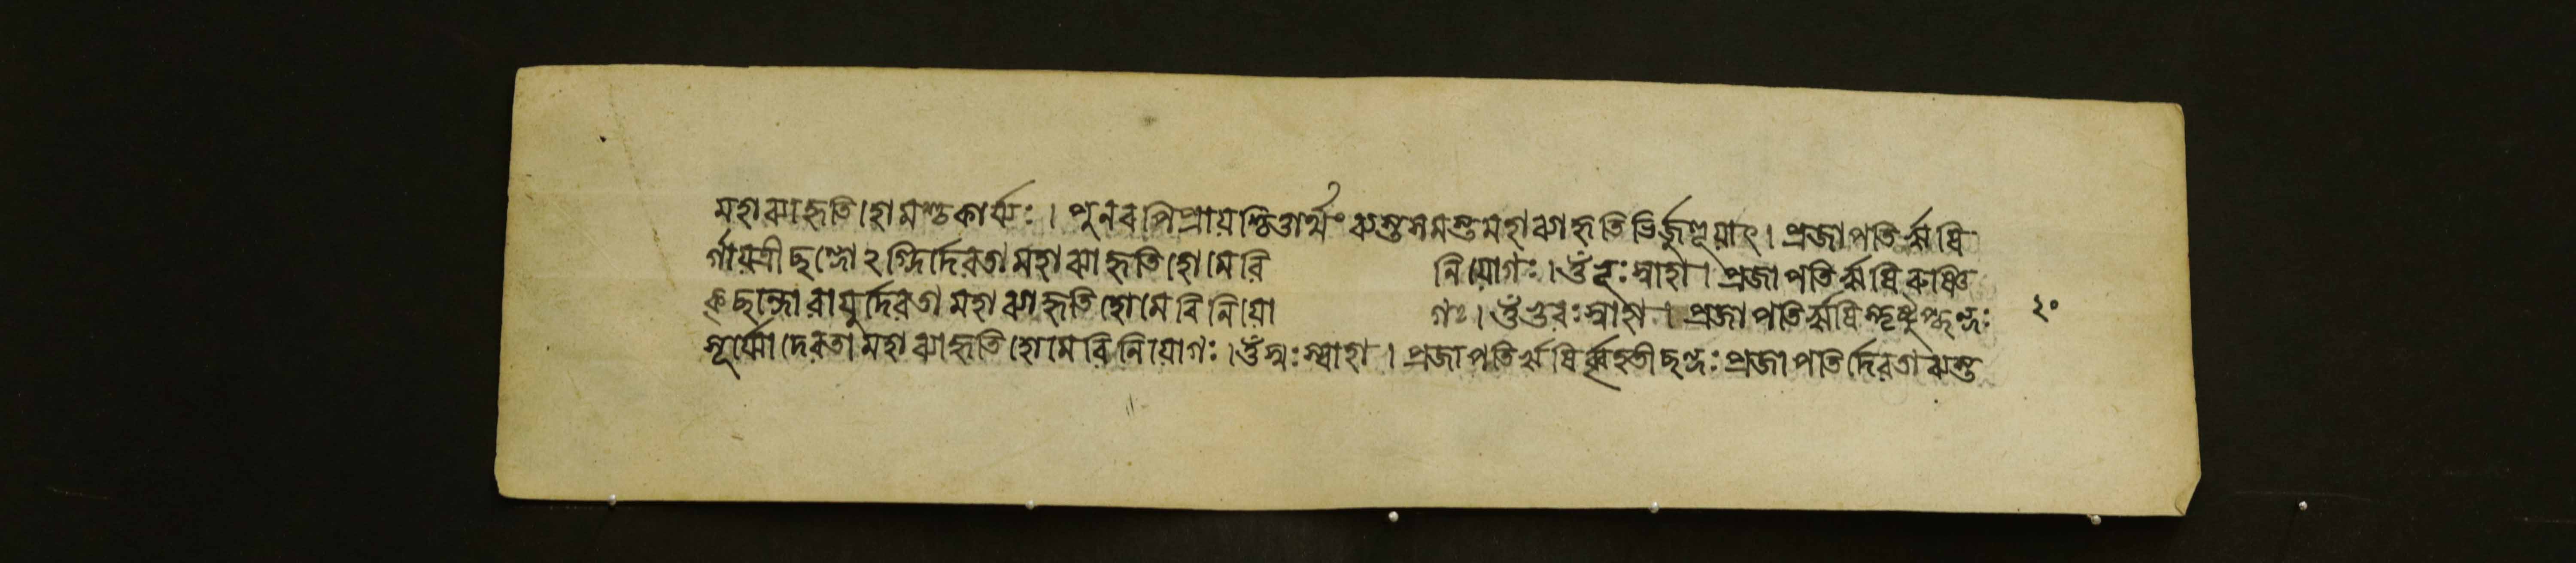 মহাব্যাহৃতিহোমশ্চকার্য্যঃ। পুনৰপিপ্রায়শ্চিত্তার্থং ব্যস্তসমস্তমহাব্যাহৃতিভির্জুহুয়াৎ। প্রজাপতির্ঋষি
র্গায়ত্রীছন্দোঽগ্নির্দেৱতা মহাব্যাহৃতিহোমেৱি নিয়োগঃ। ওঁ ভূঃস্বাহা। প্রজাপতির্ঋষিৰুষ্ণি
ক্ছন্দোৱায়ুর্দেৱতা মহাব্যাহৃতিহোমেৱিনিয়ো গঃ। ওঁ ভুৱঃস্বাহা। প্রজাপতির্ঋষিস্ত্রিষ্টুপ্ছন্দঃ ২০
সূর্য্যোদেৱতা মহাব্যাহৃতিহোমেৱিনিয়োগঃ। ওঁ স্বঃস্বাহা। প্রজাপতির্ঋষির্বৃহতীছন্দঃ প্রজাপতির্দেৱতা ব্যস্ত